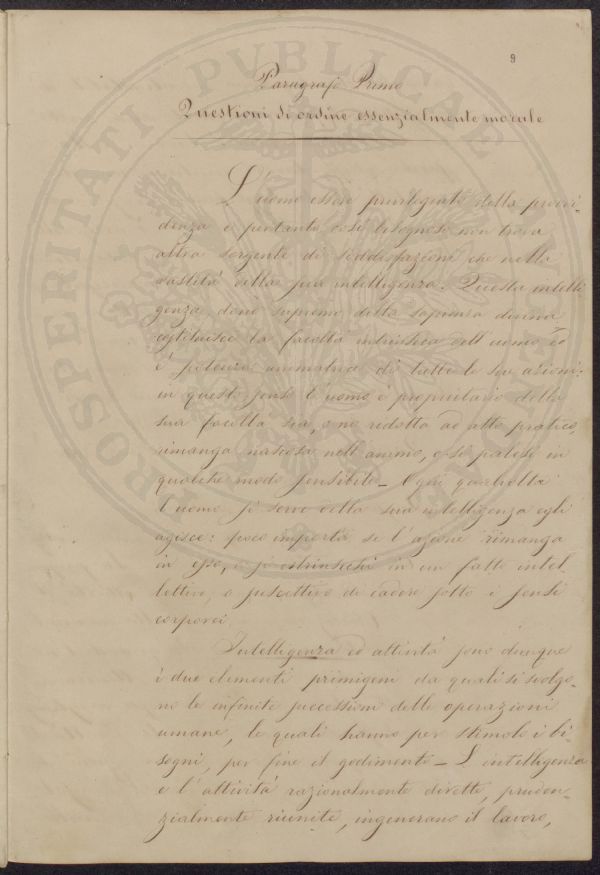 9
Paragrafo Primo
Questioni di ordine essenzialmente morale
L'uomo essere privilegiato della provvi-
denza e pertanto così bisognoso non trova
altra sorgente di soddisfazioni che nella
vastità della sua intelligenza. Questa intelli
genza dono supremo della sapienza divina
costituisce la facoltà intrinseca dell'uomo
è potenza animatrice di tutte le sue azioni:
in questo senso l'uomo è proprietario della
sua facoltà sia, o no ridotta ad atto pratico,
rimanga nascosa nell'animo, o si palesi in
qualche modo sensibile_ Ogni qualvolta
l'uomo si serve della sua intelligenza egli
agisce: poco importa se l'azione rimanga
in esso, o si estrinsechi in un fatto intel
lettivo, o suscettivo di cadere sotto i sensi
corporei.
Intelligenza ed attività sono dunque
i due elementi primigeni da quali si svolgo-
no le infinite successioni delle operazioni
umane, le quali hanno per stimolo i bi-
sogni, per fine il godimento_ L'intelligenza
e l'attività razionalmente dirette, pruden-
zialmente riunite, ingenerano il lavoro,
PROSPERITATI PUBLICAE AUGENDAE